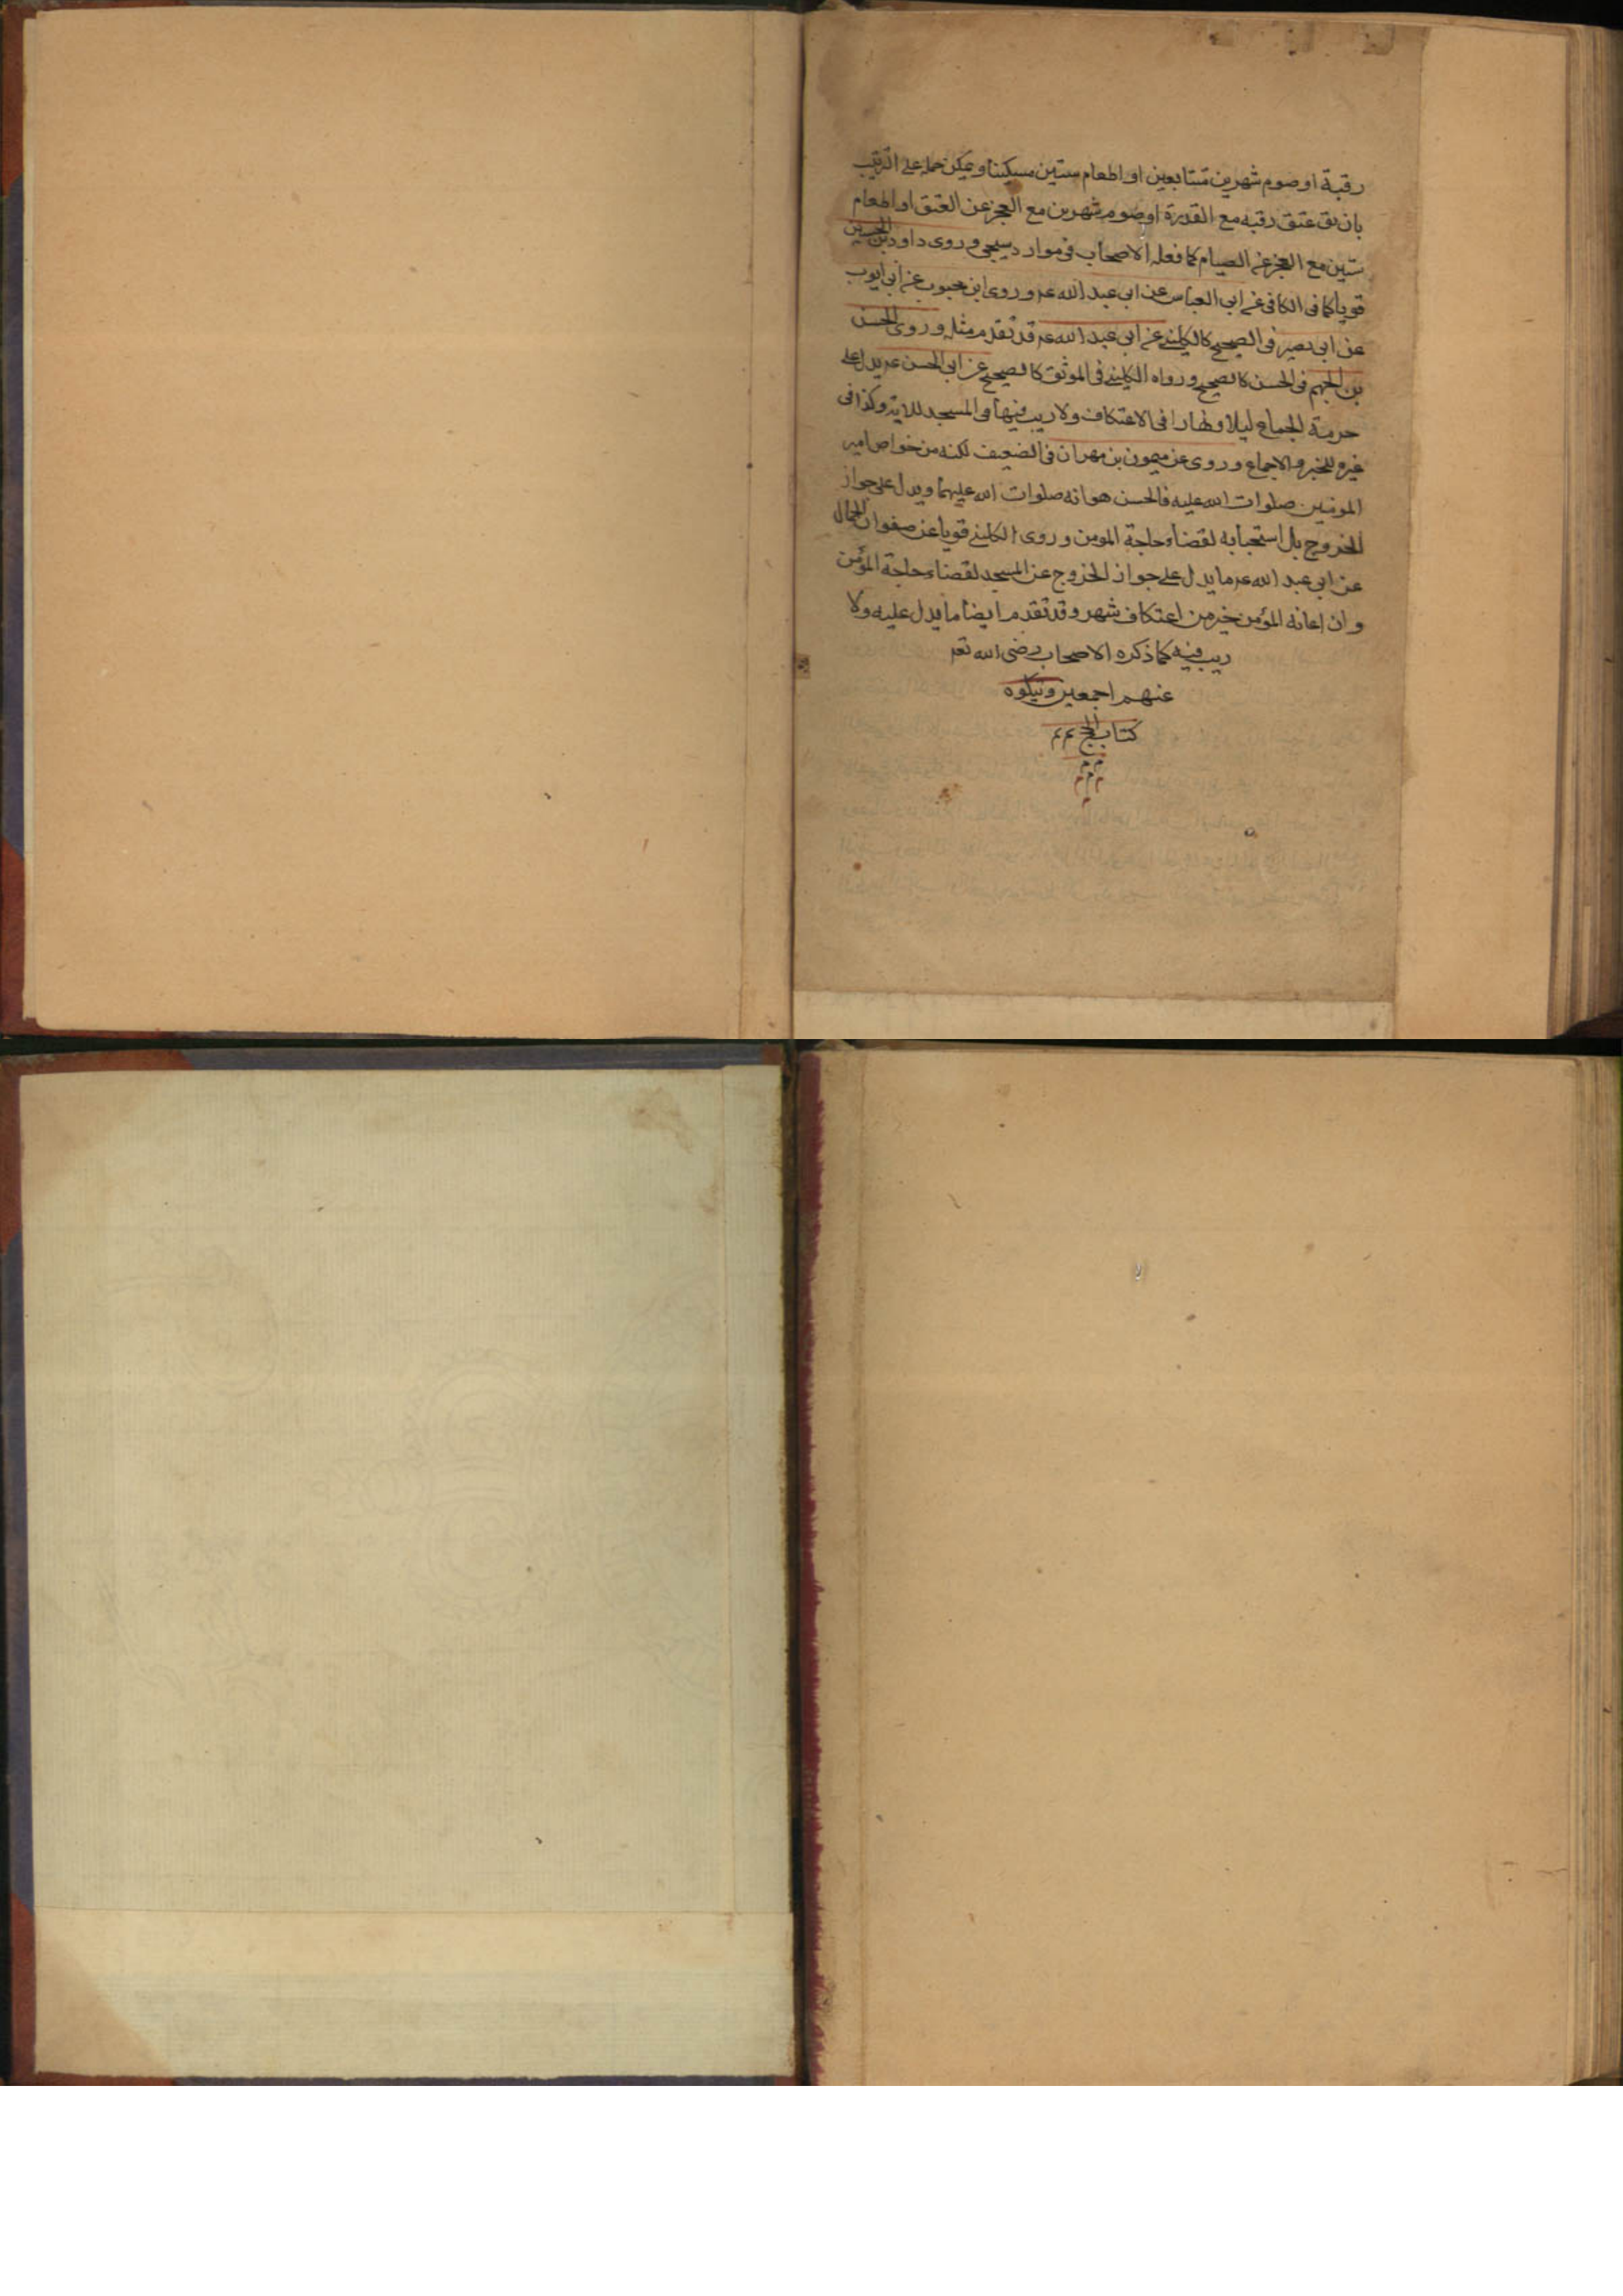 رقبة او صوم شهرين متتابعين او اطعام ستين مسكينا ويمكن حمله على الترتيب
بان يق عتق رقبه مع القدرة او صوم شهرين مع العجز عن العتق او اطعام
ستين مع العجز عن الصيام كما فعله الاصحاب فى موارد سيجى وروى داود بن الحصين
قويا كما فى الكافى عن ابى العباس عن ابى عبد الله عم وروى ابن محبوب عن ابى ايوب
عن ابى بصير فى الصحيح كالكلينى عن ابى عبد الله عم قد تقدم مثله وروى الحسن
بن الجهم فى الحسن كالصحيح ورواه الكلينى فى الموثق كالصحيح عن ابى الحسن عم يدل على
حرمة الجماع ليلا ونهارا فى الاعتكاف ولا ريب فيها فى المسجد للاية وكذا فى
غيره للخبر والاجماع وروى عن ميمون بن مهران فى الضعيف لكنه من خواص امير
المومنين صلوات الله عليه فالحسن هو انه صلوات الله عليهما ويدل على جواز
الخروج بل استحبابه لقضاء حاجة المومن وروى الكلينى قويا عن صفوان الجمال
عن ابى عبد الله عم ما يدل على جواز الخروج عن المسجد لقضاء حاجة المؤمن
وان اعانة المؤمن خير من اعتكاف شهر وقد تقدم ايضا ما يدل عليه ولا
ريب فيه كما ذكره الاصحاب رضى الله تعم
عنهم اجمعين ويتلوه
كتاب الحج م م